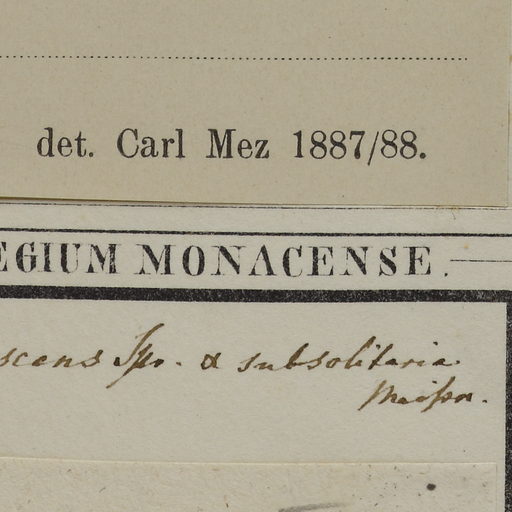 det. Carl Mez 1887/88.
EGIUM MONACENSE.
scens Spr. α subsolitaria
Meisn.